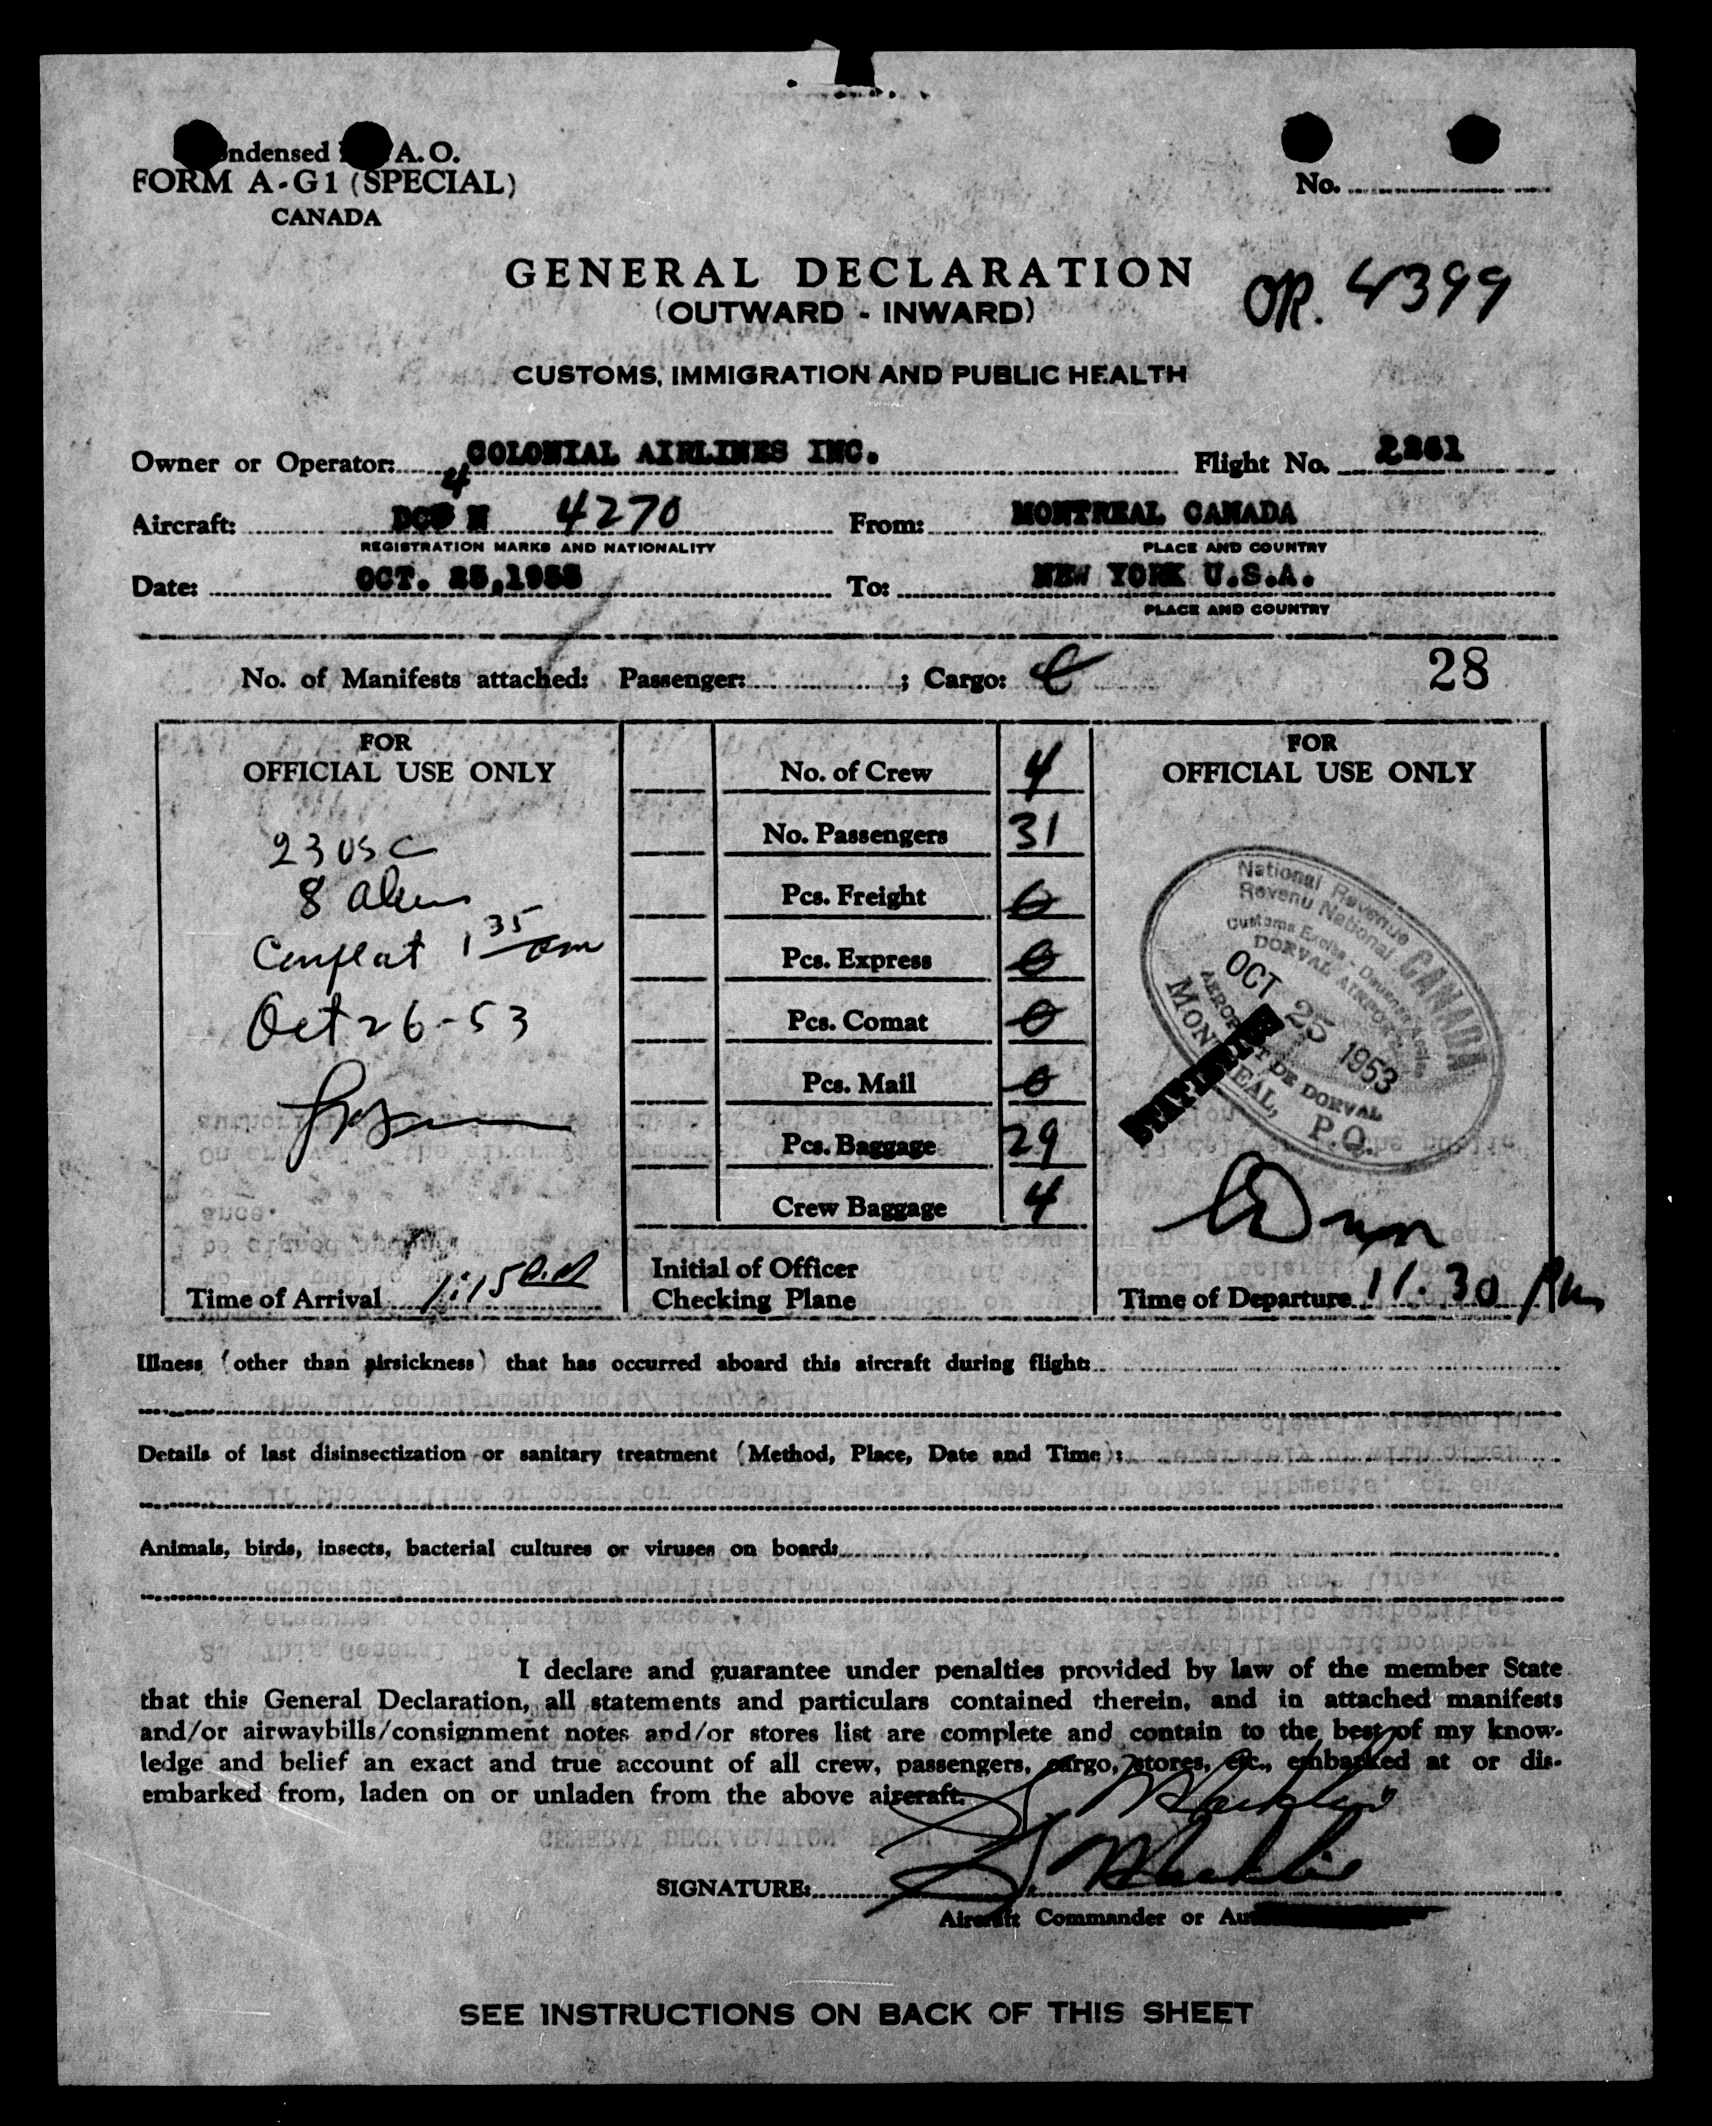 ndensed A. O.
FORM A-G1 (SPECIAL)
CANADA
No.
GENERAL DECLARATION
(OUTWARD - INWARD)
OR. 4399
CUSTOMS, IMMIGRATION AND PUBLIC HEALTH
Owner or Operator: COLONIAL AIRLINES INC. Flight No. 2261
4
Aircraft: DC N 4270 From: MONTREAL CANADA
REGISTRATION MARKS AND NATIONALITY PLACE AND COUNTRY
Date: OCT. 25,1953 To: NEW YORK U.S.A.
PLACE AND COUNTRY
No. of Manifests attached: Passenger: ; Cargo:
28
FOR
OFFICIAL USE ONLY
23 USC
8 aliens
Complet 1 35 am
Oct 26-53
Time of Arrival 1:15 A.M
No. of Crew 4
No. Passengers 31
Pcs. Freight 0
Pcs. Express 0
Pcs. Comat 0
Pcs. Mail 0
Pcs. Baggage 29
Crew Baggage 4
Initial of Officer
Checking Plane
FOR
OFFICIAL USE ONLY
National Revenue CANADA
Revenu National
Customs Excise - Douanes Accise
DORVAL AIRPORT
OCT 25 1953
AEROPORT DE DORVAL
MONTREAL, P.Q.
STATISTICS
Time of Departure 11.30 Pm
Illness (other than airsickness) that has occurred aboard this aircraft during flight:
Details of last disinsectization or sanitary treatment (Method, Place, Date and Time):
Animals, birds, insects, bacterial cultures or viruses on board:
I declare and guarantee under penalties provided by law of the member State
that this General Declaration, all statements and particulars contained therein, and in attached manifests
and/or airwaybills/consignment notes and/or stores list are complete and contain to the best of my know-
ledge and belief an exact and true account of all crew, passengers, cargo, stores, etc., embarked at or dis-
embarked from, laden on or unladen from the above aircraft.
SIGNATURE:
Aircraft Commander or Au
SEE INSTRUCTIONS ON BACK OF THIS SHEET